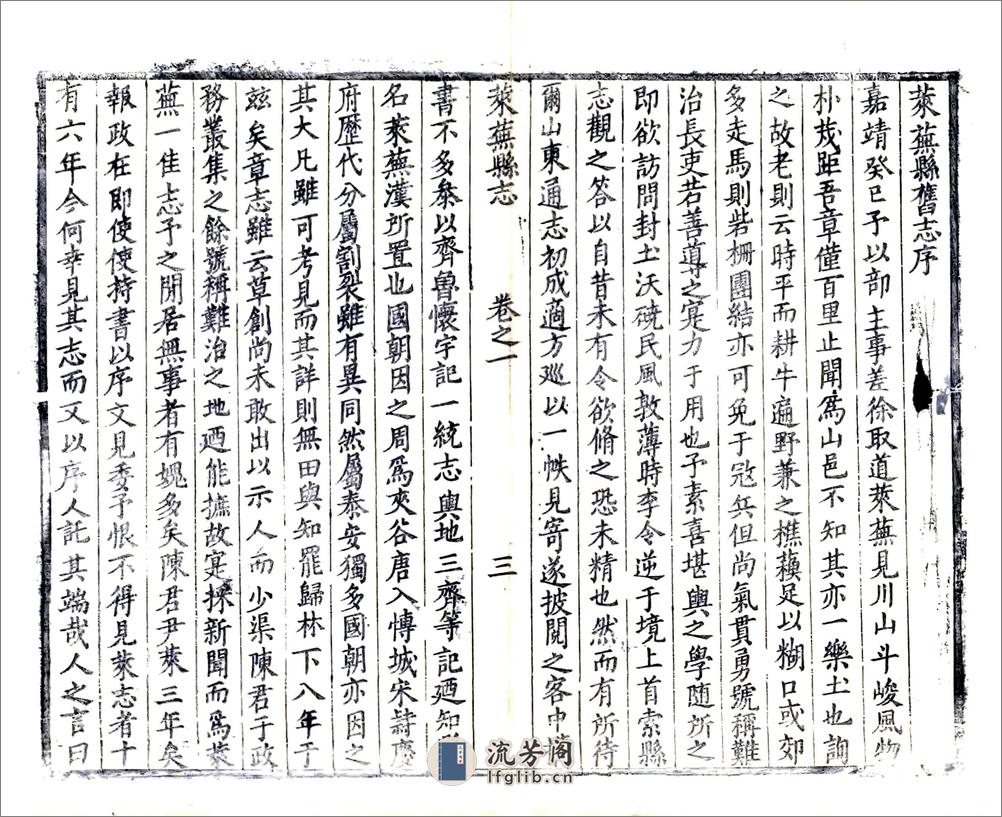 萊蕪縣舊志序
嘉靖癸巳予以部主事差徐取道萊蕪見川山斗峻風物
朴茂距吾章僅百里止聞爲山邑不知其亦一樂土也詢
之故老則云時平而耕牛遍野兼之樵蘓足以糊口或郊
多走馬則砦柵團結亦可免于冦兵但尚氣貫勇號稱難
治長吏若善導之寔力于用也予素喜堪輿之學随所之
即欲訪問封土沃磽民風敦薄時李令逆于境上首索縣
志觀之答以自昔未有令欲脩之恐未精也然而有所待
爾山東通志初成適方廵以一帙見寄遂披閱之客中
萊蕪縣志 卷之一 三
書不多叅以齊魯懷宇記一統志輿地三齊等記廼知
名萊蕪漢所置也國朝因之周爲夾谷唐入愽城宋隸慶
府歷代分屬割裂雖有異同然屬泰安獨多國朝亦因之
其大凡雖可考見而其詳則無田與知罷歸林下八年于
玆矣章志雖云草創尚未敢出以示人而少渠陳君于政
務叢集之餘號稱難治之地廼能摭故寔採新聞而爲萊
蕪一佳志予之閒居無事者有媿多矣陳君尹萊三年矣
報政在即使使持書以序文見委予恨不得見萊志者十
有六年今何幸見其志而又以序人託其端哉人之言曰
流芳阁
lfglib.cn